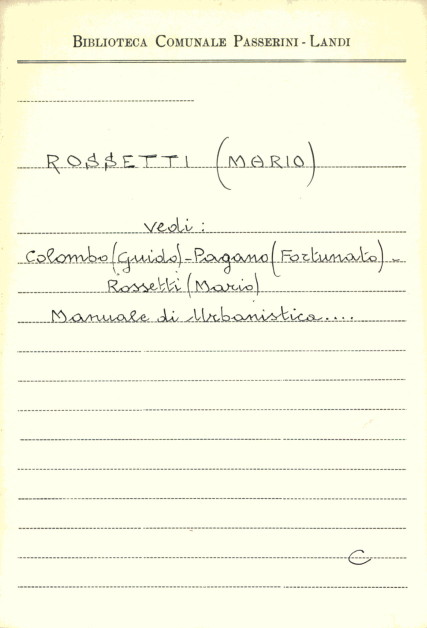 BIBLIOTECA COMUNALE PASSERINI - LANDI
ROSSETTI (MARIO)
vedi :
Colombo (Guido) - Pagano (Fortunato) -
Rossetti (Mario)
Manuale di Urbanistica....
C